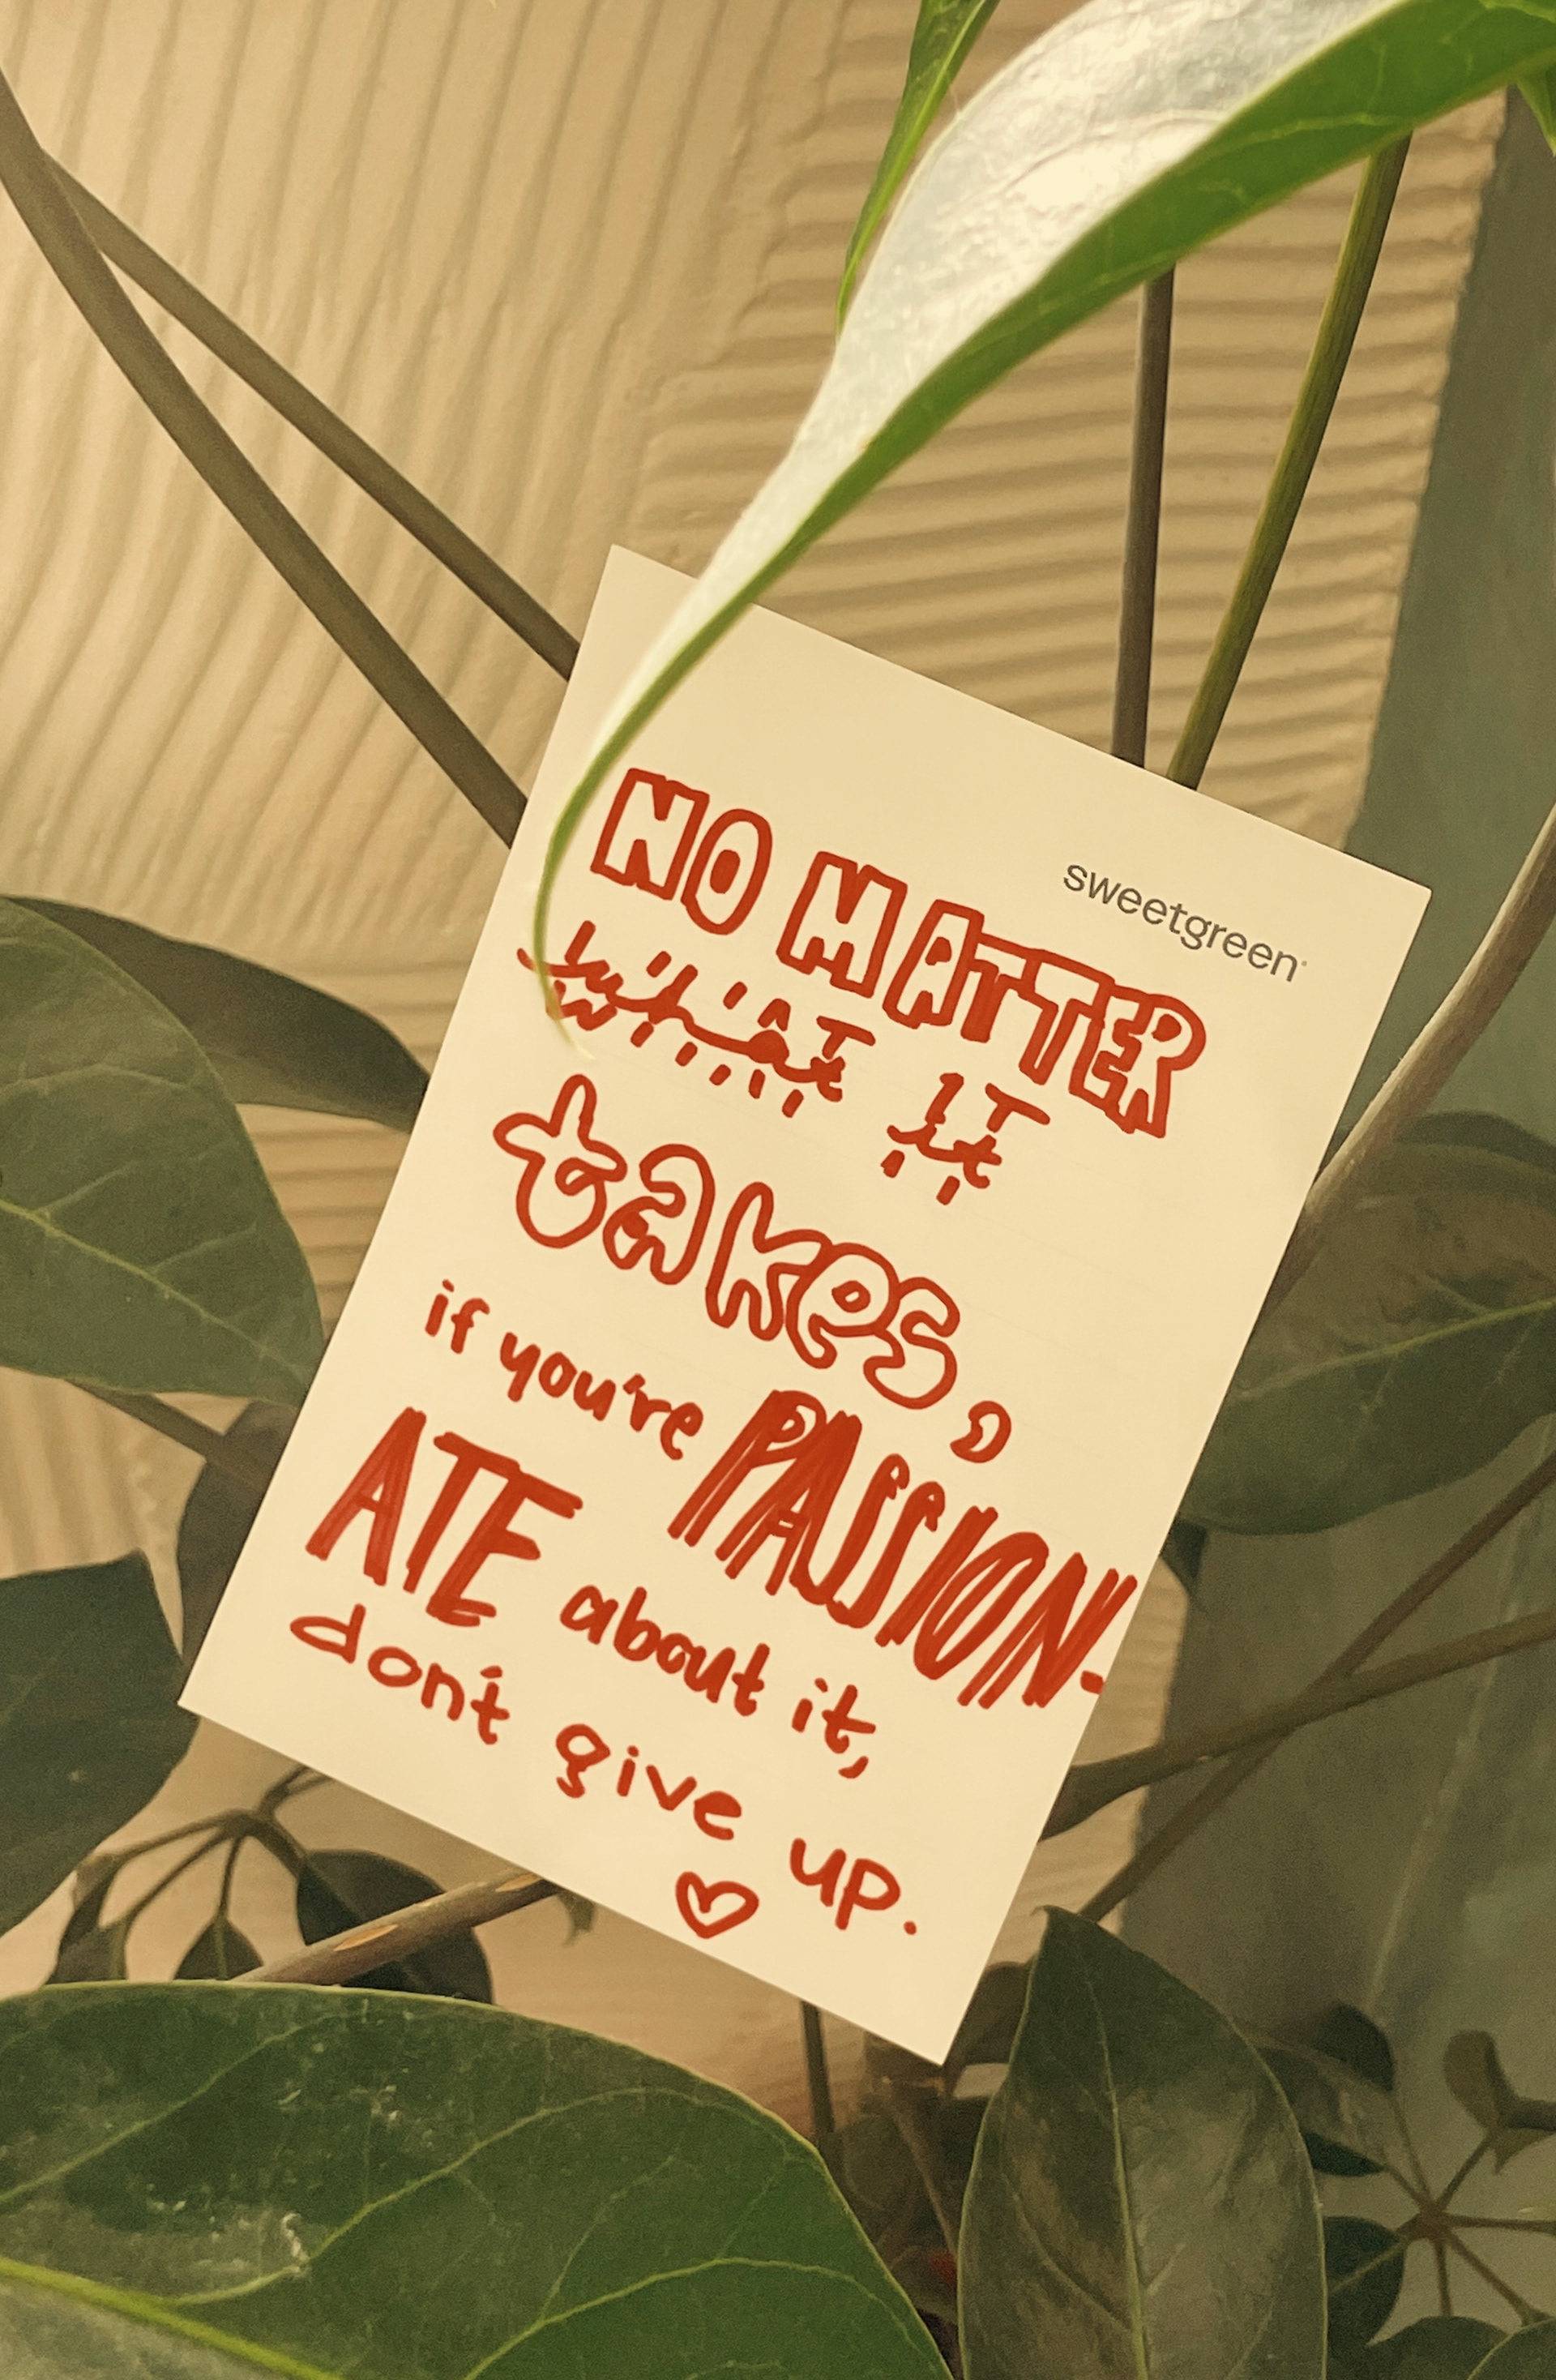 sweetgreen
NO MATTER
what it
takes,
if you're PASSION-
ATE about it,
don't give up.